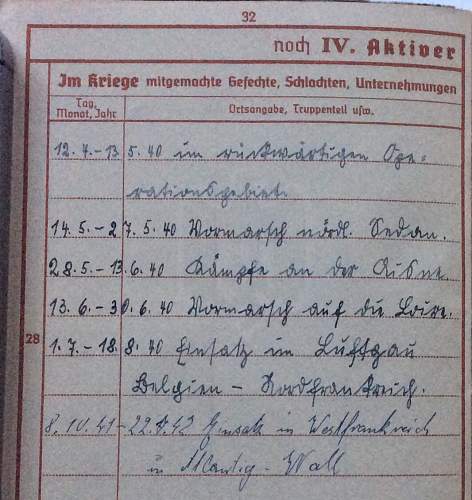 32
noch IV. Aktiver
Im Kriege mitgemachte Gefechte, Schlachten, Unternehmungen
Tag, Monat, Jahr
Ortsangabe, Truppenteil usw.
12.4.-13.5.40 im rückwärtigen Ope=
rationsgebiet.
14.5.-27.5.40 Vormarsch nördl. Sedan.
28.5.-13.6.40 Kämpfe an der Aisne.
13.6.-30.6.40 Vormarsch auf die Loire.
28
1.7.-18.8.40 Einsatz im Luftgau
Belgien - Nordfrankreich.
8.10.41-22.4.42 Einsatz in Westfrankreich
in Atlantig-Wall